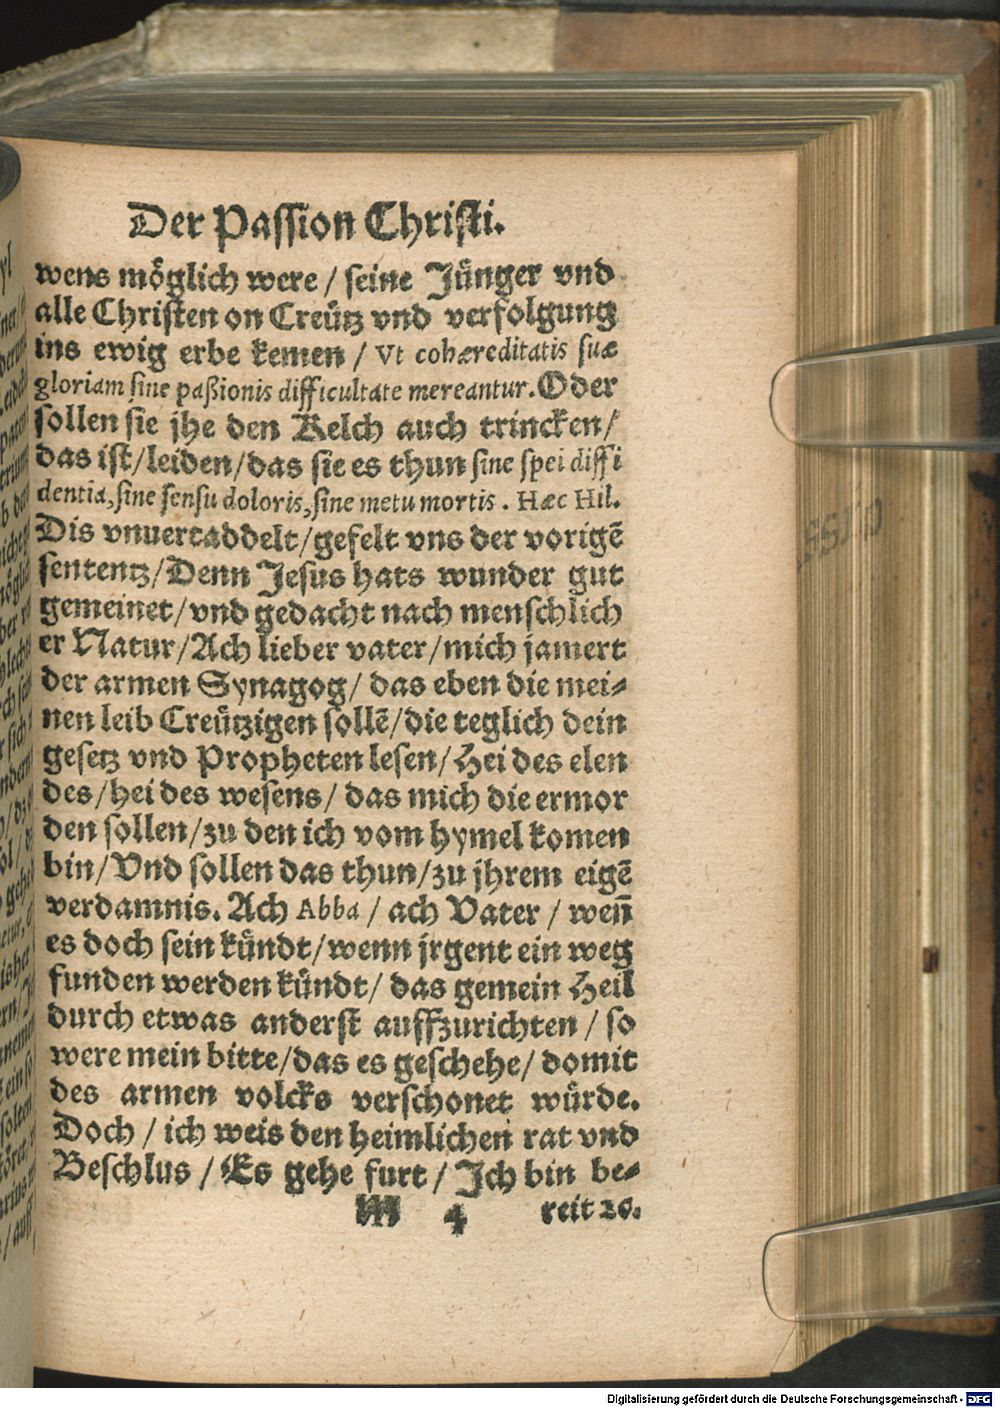 Der Passion Christi.
wens möglich were / seine Jünger vnd
alle Christen on Creütz vnd verfolgung
ins ewig erbe kemen / Vt cohæreditatis suæ
gloriam sine paßionis difficultate mereantur. Oder
sollen sie jhe den Kelch auch trincken/
das ist/leiden/das sie es thun sine spei diffi
dentia, sine sensu doloris, sine metu mortis. Hæc Hil.
Dis vnuertaddelt/gefelt vns der vorigẽ
sententz/Denn Jesus hats wunder gut
gemeinet/vnd gedacht nach menschlich
er Natur/Ach lieber vater/mich jamert
der armen Synagog/ das eben die mei⸗
nen leib Creützigen sollẽ/die teglich dein
gesetz vnd Propheten lesen/Hei des elen
des/hei des wesens/ das mich die ermor
den sollen/zu den ich vom hymel komen
bin/Vnd sollen das thun/zu jhrem eigẽ
verdamnis. Ach Abba / ach Vater / weñ
es doch sein kündt/wenn jrgent ein weg
funden werden kündt/ das gemein Heil
durch etwas anderst auffzurichten / so
were mein bitte/das es geschehe/ domit
des armen volcks verschonet würde.
Doch / ich weis den heimlichen rat vnd
Beschlus / Es gehe furt / Ich bin be⸗
M 4 reit ꝛc.
Digitalisierung gefördert durch die Deutsche Forschungsgemeinschaft - DFG